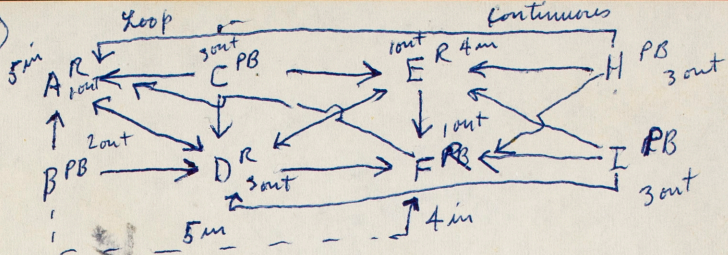 Loop Continuous
5 in A R 1 out 3 out C PB 1 out E R 4 in H PB 3 out
B PB 2 out D R 3 out F 1 out I PB 3 out
5 in 4 in